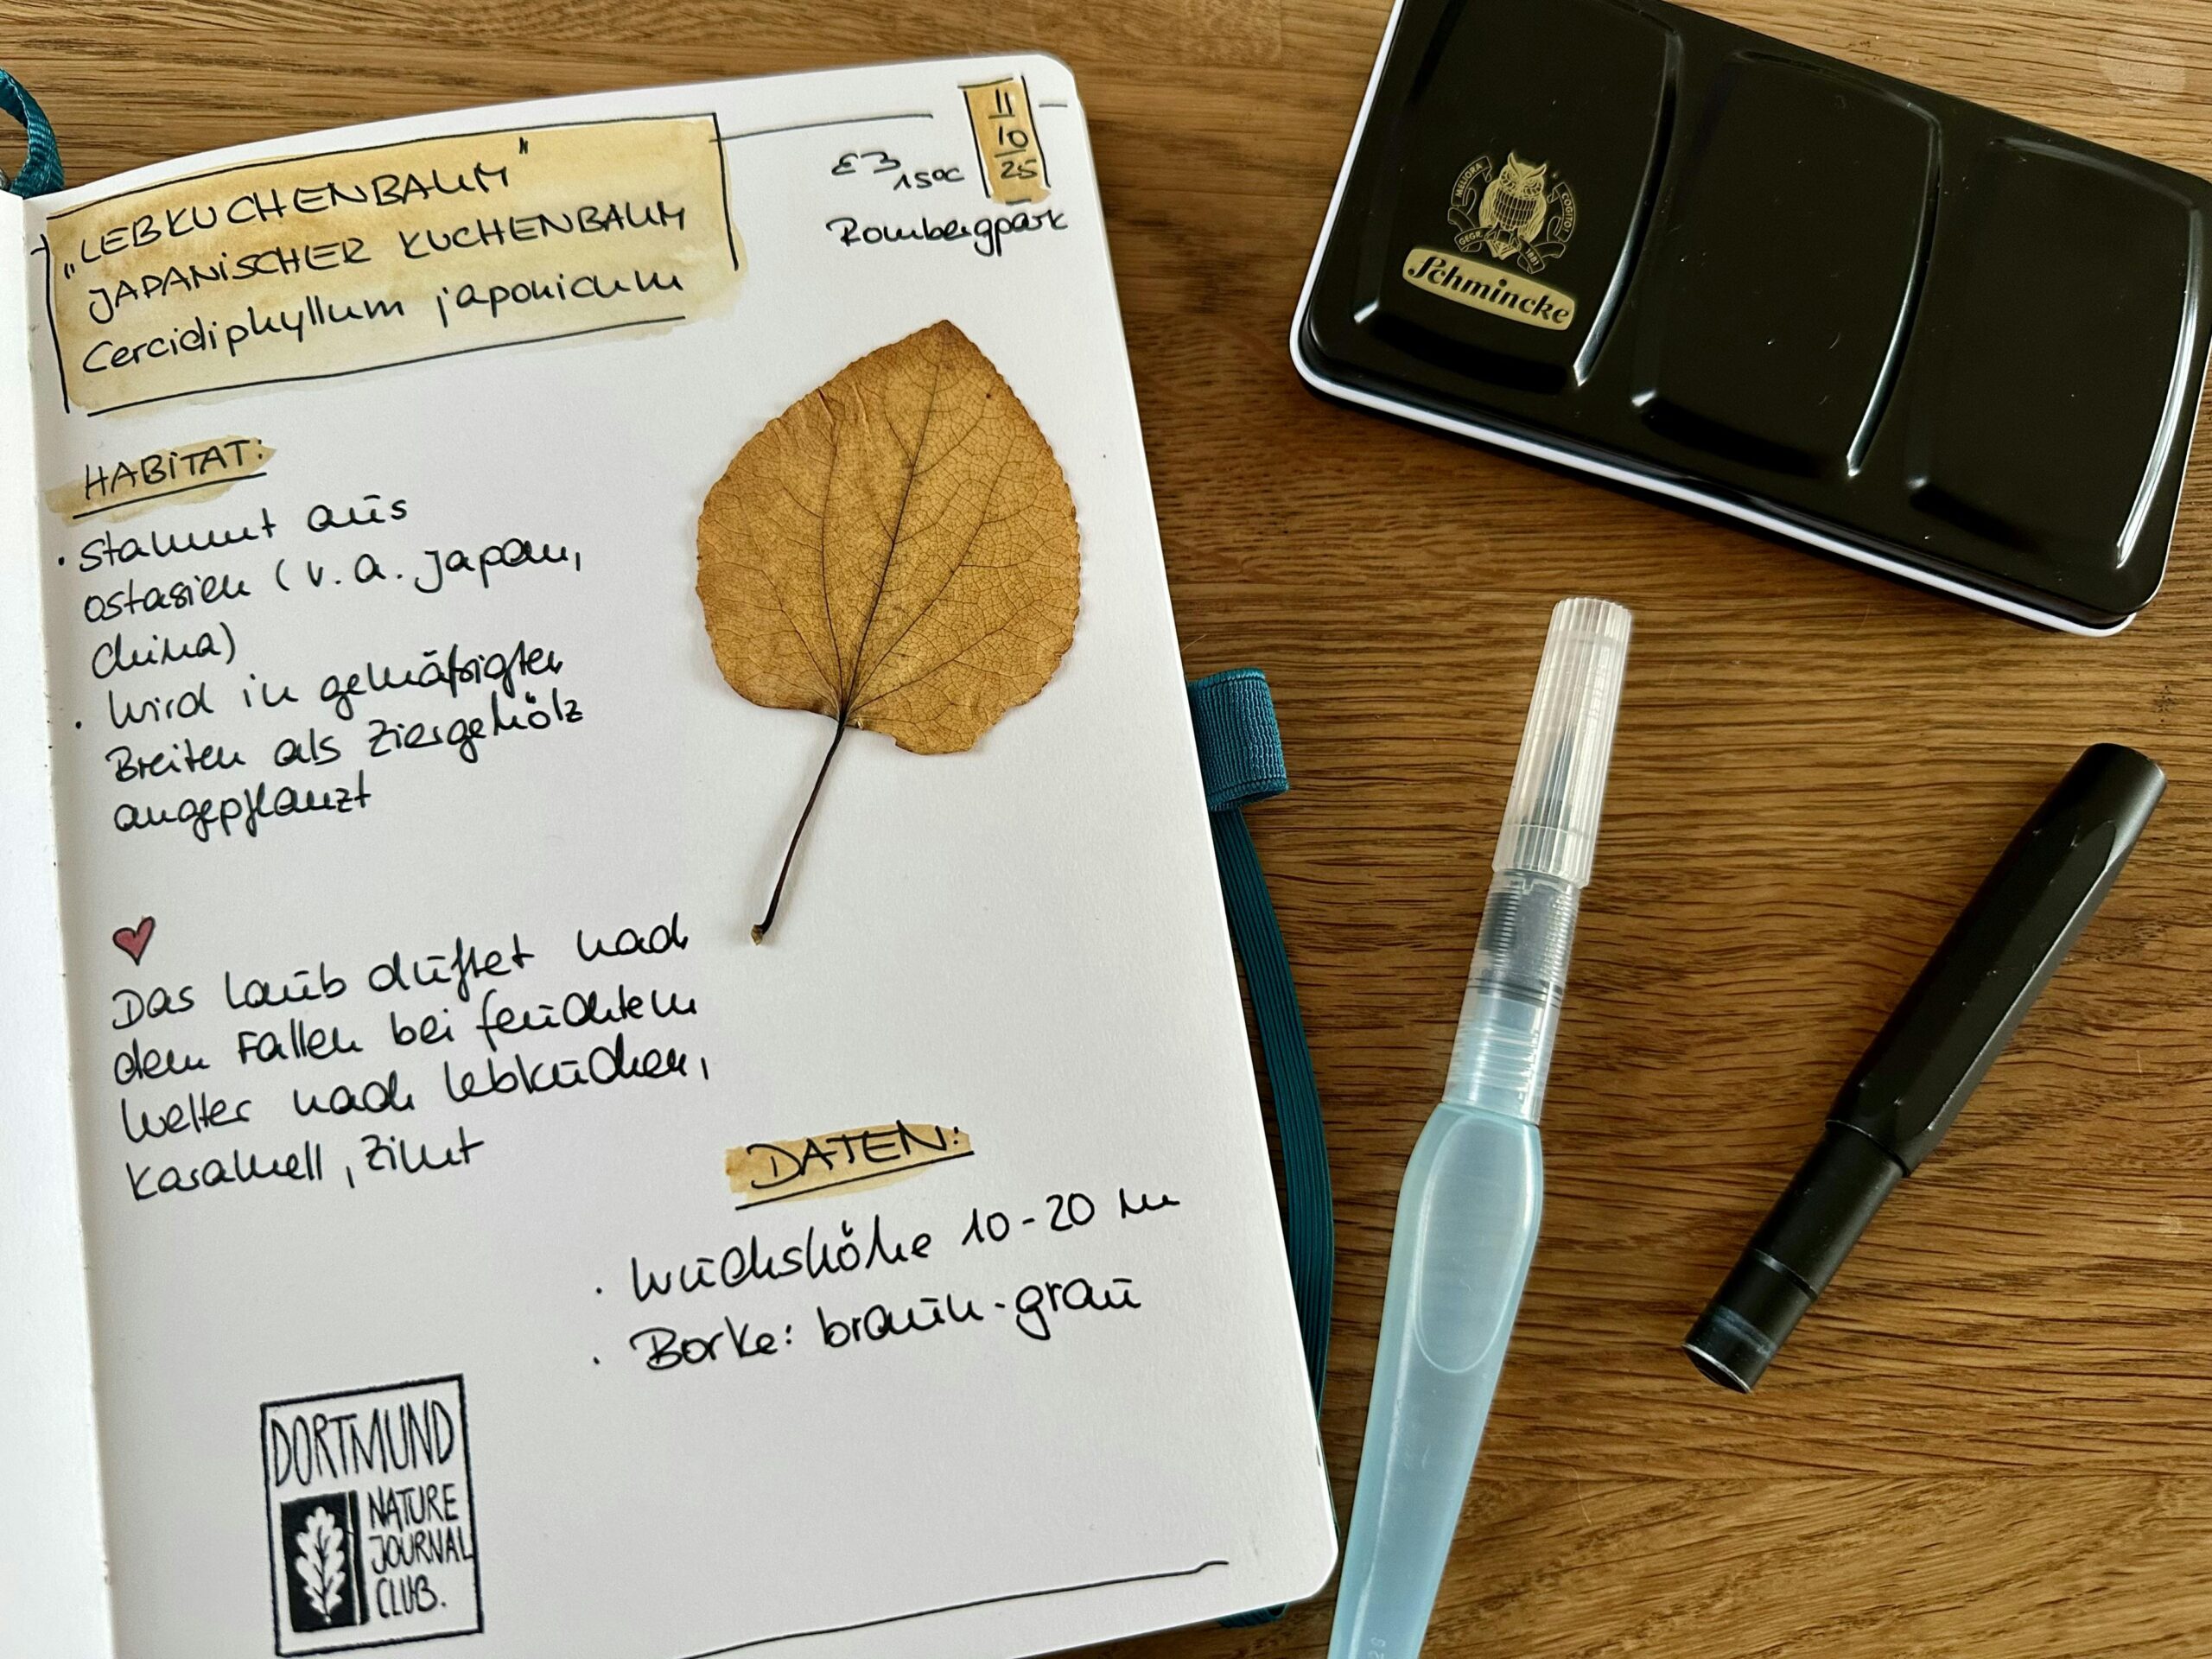 „LEBKUCHENBAUM"
JAPANISCHER KUCHENBAUM
Cercidiphyllum japonicum
11
10
25
15°C
Rombergpark
HABITAT:
· stammt aus
Ostasien (v. a. Japan,
China)
· wird in gemäßigten
Breiten als Ziergehölz
angepflanzt
Das Laub duftet nach
dem Fallen bei feuchtem
Wetter nach Lebkuchen,
Karamell, Zimt
DATEN:
· Wuchshöhe 10-20 m
· Borke: braun-grau
DORTMUND
NATURE
JOURNAL
CLUB.
MELIORA COGITO!
GEGR. 1881
Schmincke